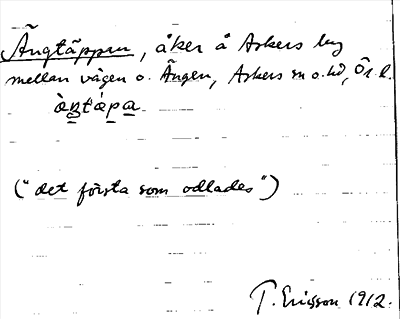 Ängtäppan, åker å Askers by
mellan vägen o. Ängen, Askers sn o. hd, Ör. l.
àŋtápa
("det första som odlades")
T. Ericsson 1912.